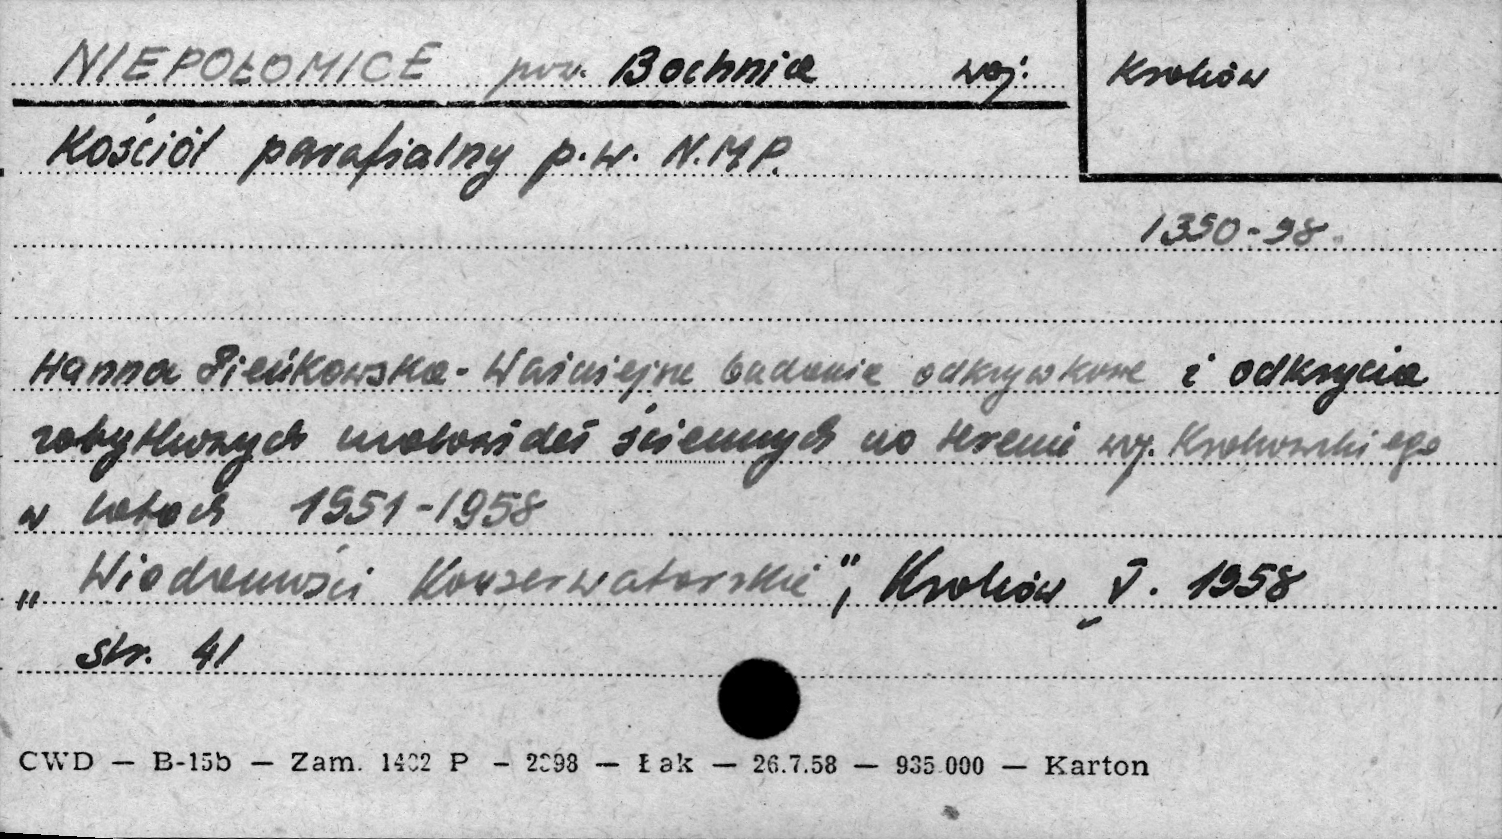 NIEPOŁOMICE pow. Bochnia woj. Kraków
Kościół parafialny p.w. N.M.P.
1350-98.
Hanna Pieńkowska - Ważniejsze badania odkrywkowe i odkrycia
zabytkowych malowideł ściennych na terenie woj. Krakowskiego
w latach 1951-1958
„Wiadomości Konserwatorskie", Kraków V. 1958
str. 41
CWD — B-15b — Zam. 1402 P — 2398 — Łak — 26.7.58 — 935.000 — Karton